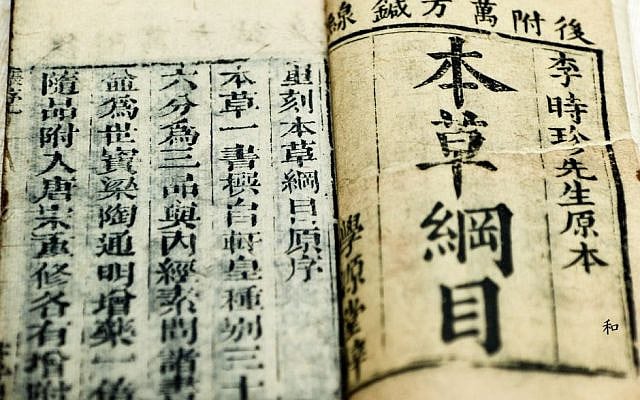 後附萬方鍼線
李時珍先生原本
本草綱目
學源堂梓
和
重刻本草綱目原序
本草一書撰自軒皇種別三十
六分為三品與內經素問諸書
為世寶梁陶通明增藥一倍
隨品附入唐宋重修各有增附